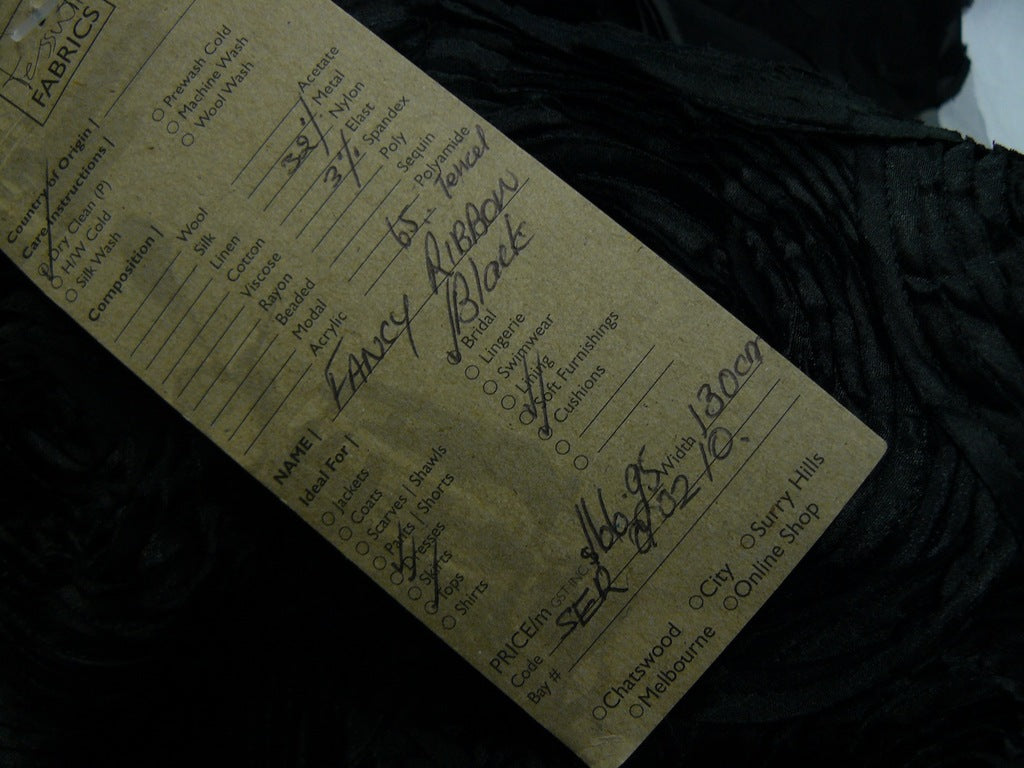 FABRICS
Country of Origin |
Care Instructions |
Dry Clean (P)
H/W Cold
Silk Wash
Prewash Cold
Machine Wash
Wool Wash
Composition |
Wool
Silk
Linen
Cotton
Viscose
Rayon
Beaded
Modal
Acrylic
Acetate
32% Metal
Nylon
3% Elast
Spandex
Poly
Sequin
Polyamide
65 Tencel
NAME | FANCY RIBBON
/Black
Ideal For |
Jackets
Coats
Scarves | Shawls
Pants | Shorts
Dresses
Skirts
Tops
Shirts
Bridal
Lingerie
Swimwear
Lining
Soft Furnishings
Cushions
PRICE/m GST INC $166.95 Width 130cm
Code SER 3210.
Bay #
Chatswood
City
Surry Hills
Melbourne
Online Shop